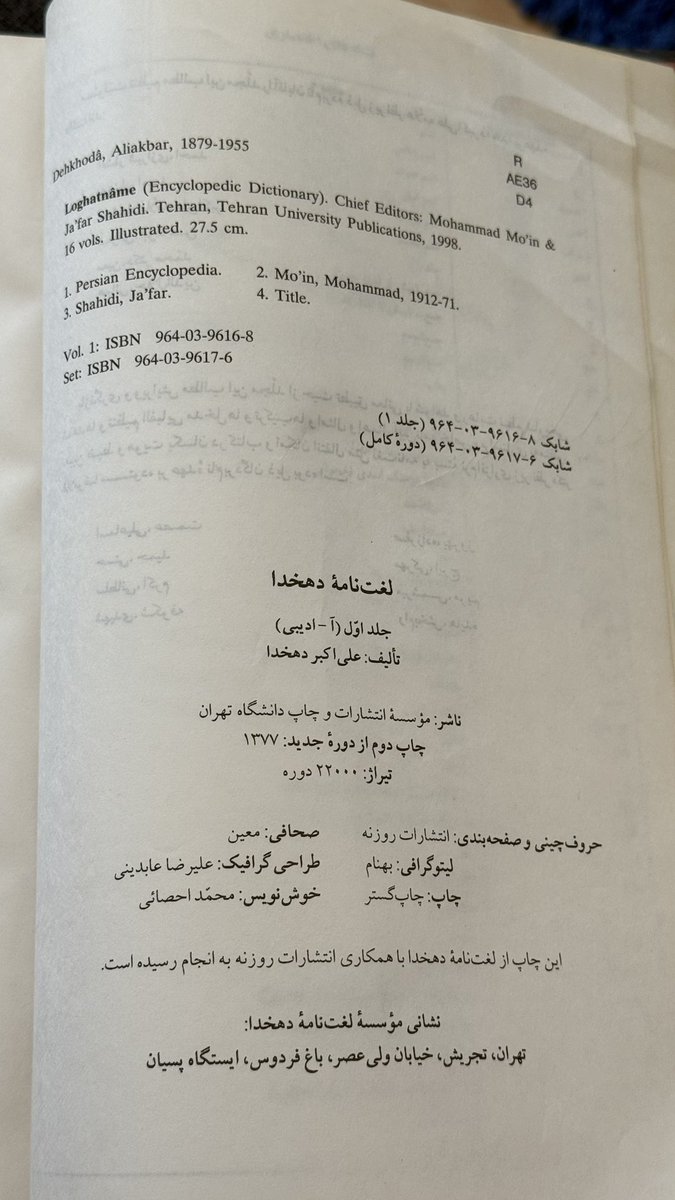 Dehkhodâ, Aliakbar, 1879-1955
R
AE36
D4
Loghatnâme (Encyclopedic Dictionary). Chief Editors: Mohammad Mo'in &
Ja'far Shahidi. Tehran, Tehran University Publications, 1998.
16 vols. Illustrated. 27.5 cm.
1. Persian Encyclopedia. 2. Mo'in, Mohammad, 1912-71.
3. Shahidi, Ja'far. 4. Title.
Vol. 1: ISBN 964-03-9616-8
Set: ISBN 964-03-9617-6
شابک ۸-۹۶۱۶-۰۳-۹۶۴ (جلد ۱)
شابک ۶-۹۶۱۷-۰۳-۹۶۴ (دورهٔ کامل)
لغت‌نامهٔ دهخدا
جلد اوّل (آ - ادیبی)
تألیف: علی‌اکبر دهخدا
ناشر: مؤسسهٔ انتشارات و چاپ دانشگاه تهران
چاپ دوم از دورهٔ جدید: ۱۳۷۷
تیراژ: ۲۲۰۰۰ دوره
حروف‌چینی و صفحه‌بندی: انتشارات روزنه صحافی: معین
لیتوگرافی: بهنام طراحی گرافیک: علیرضا عابدینی
چاپ: چاپ‌گستر خوش‌نویس: محمّد احصائی
این چاپ از لغت‌نامهٔ دهخدا با همکاری انتشارات روزنه به انجام رسیده است.
نشانی مؤسسهٔ لغت‌نامهٔ دهخدا:
تهران، تجریش، خیابان ولی‌عصر، باغ فردوس، ایستگاه پسیان